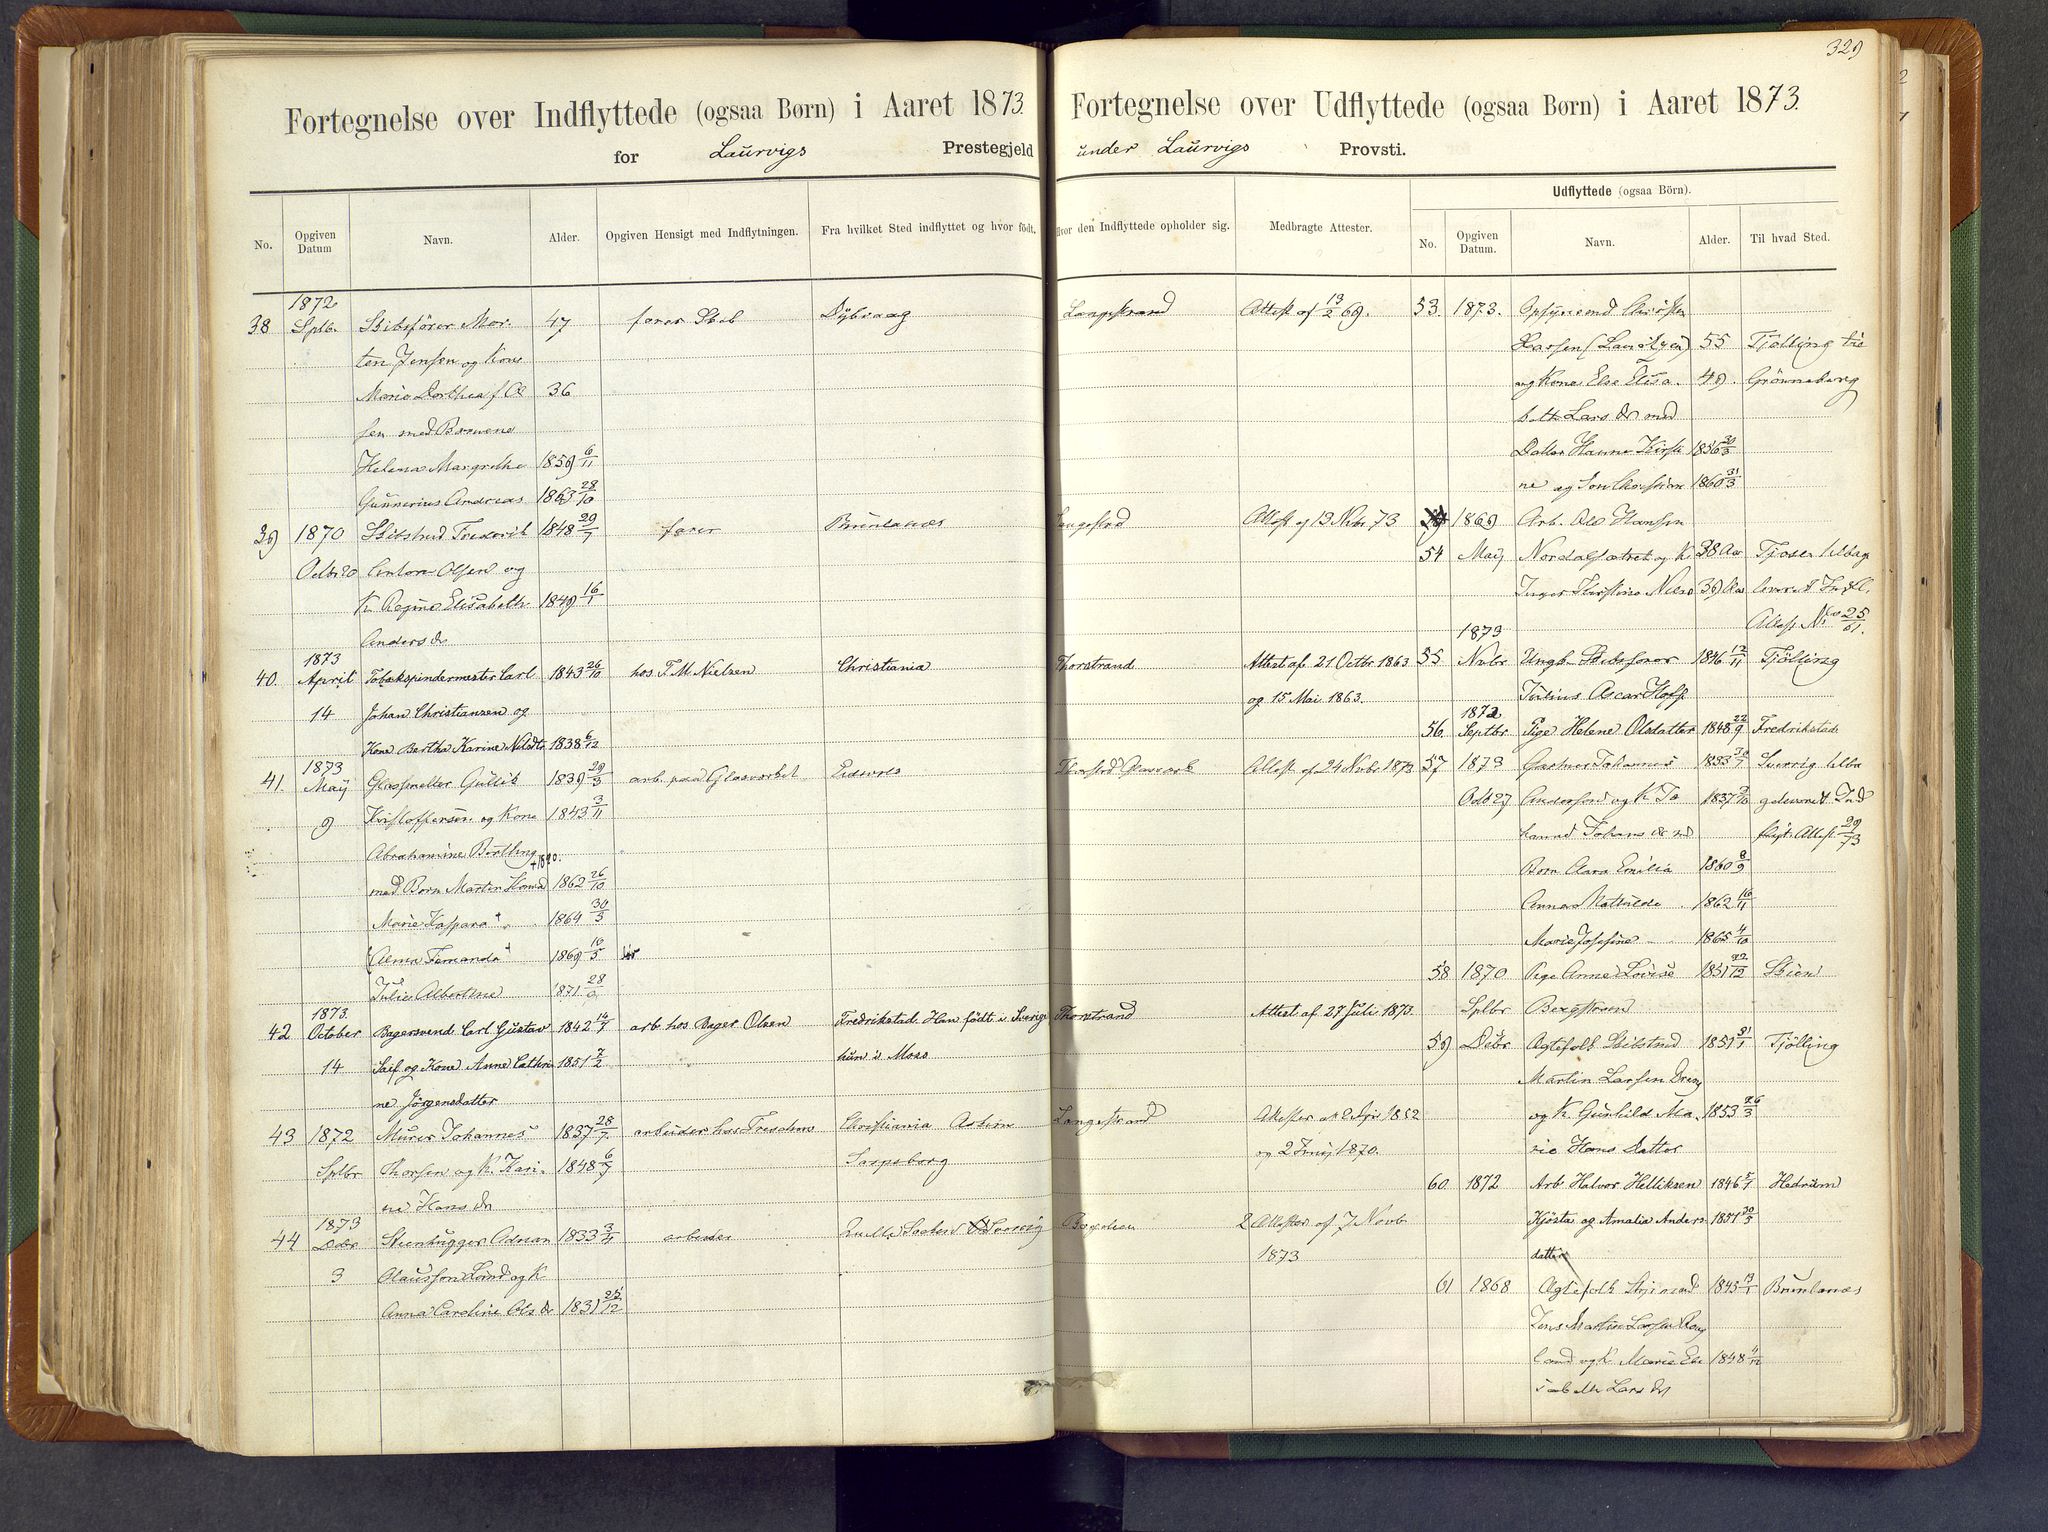 329
Fortegnelse over Indflyttede (ogsaa Børn) i Aaret 1873.
for Laurvigs Prestegjeld
No. Opgiven Datum Navn. Alder. Opgiven Hensigt med Indflytningen. Fra hvilket Sted indflyttet og hvor født.
1872
38 Sptb. Skibsfører Mor- 47 farer Skib Dybvaag
ten Jensen og Kone
Marie Dorthea f. Ol 36
sen med Børnene
Helena Margrethe 1859 6/11
Gunnerius Andreas 1863 28/10
39 1870 Skibstmd Frederik 1848 29/7 farer Brunlanæs
Octbr 20 Anton Olsen og
K Regine Elisabeth 1849 16/1
Anders dr
1873
40. April Tobakspindermester Carl 1843 26/10 hos F. M. Nielsen Christiania
14 Johan Christiansen og
Kone Bertha Karine Nilsdtr 1838 6/12
1873
41. Maij Glassmelter Gullik 1839 29/3 arb. paa Glasværket Eidsvold
9 Kristoffersen og Kone 1843 3/11
Abrahamine Berthine
+ 1890.
med Børn Martin 1862 26/10
Marie Kaspara + 1864 30/3
(Alma Fernanda + 1869 16/5
Julie Albertine 1871 28/9
1873.
42 October Bagersvend Carl Gustav 1842 14/7 arb. hos Bager Olsen Fredrikstad. Han født i Sverige
14 Saif og Kone Anne Cathri 1851 7/2 hun i Moss
ne Jörgensdatter
43 1872 Murer Johannes 1837 28/7 arbeider hos Treschow Christiania
Sptbr Thorsen og K. Kari- 1848 6/9 Sarpsborg
ne Hans dr
1873
44 Debr Steenhugger Adrian 1833 3/11 arbeider
3 Olausson Lind og K
Anna Caroline Ols dr 1831 25/12
Fortegnelse over Udflyttede (ogsaa Børn) i Aaret 1873.
under Laurvigs Provsti.
Udflyttede (ogsaa Börn).
Hvor den Indflyttede opholder sig. Medbragte Attester. No. Opgiven Datum. Navn. Alder. Til hvad Sted.
Langestrand Attest af 13/2 69. 53. 1873. Opsynsmd Christen
Larsen 55 Tjølling
og Kone Else Elisa- 49. Grønneberg
beth Lars dr med
Datter Hanne Kirsti 1856 30/3
ne og Søn Christian 1860 31/3
Langestrd Attest af 13 Nvbr. 73 1869 Arb. Ole Hansen
54 Maij og K 38 Aar tilbage
Inger Kirstine Niels 39 Aar leveret Indfl.
Attest No 25/61.
1873
Thorstrand Attest af 21 Octbr 1863 55 Nvbr Ungk. Skibsfører 1846 12/11 Tjølling
og 15 Mai 1863. Julius Oscar Hoff
1872
56. Septbr Pige Helene Olsdatter 1848 22/9 Fredrikstad
Attest af 24 Nvbr 1873 57 1873 Gartner Johannes 1833 Sverrig tilba
Octb 27 Anderson og K Jo 1837 9/10 geleveret Ind
hanne Johans dr md flyt. Attest 29/73
Børn Clara Emilia 1860 8/9
Anna Mathilde 1862 16/11
Marie Josefine 1865 4/10
58 1870 Pige Anne Lovise 1851 22/12 Skien
Thorstrand Attest af 27 Juli 1873. Sptbr Bergstrøm
59 Debr Ægtefolk Skibstmd 1851 31/1 Tjølling
Martin Larsen
Langestrand Attester af 2 Apr. 1852 og K. Gunhild Ma- 1853 26/3
og 2 Junij 1870. rie Hans Datter
60. 1872 Arb Halvor Helliksen 1846 5/7 Hedrum
2 Attester af 7 Novb Kjösta og Amalia Anders- 1851 30/5
1873 datter
61 1868 Ægtefolk 1843 19/1 Brunlanæs
Jens Martin Larsen
land og K. Marie Eli 1848 4/12
sabeth Lars dr